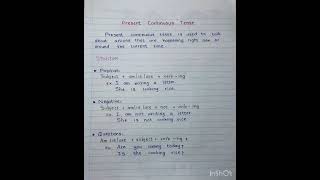 Present Continuous Tense
Present continuous tense is used to talk
about actions that are happening right now or
around the current time.
Structure
• Positive:
Subject + am/is/are + verb + ing
ex. I am writing a letter
She is cooking rice.
• Negative:
Subject + am/is/are + not + verb + ing
ex. I am not writing a letter
She is not cooking rice
• Questions:
Am/is/are + subject + verb + ing ?
ex. Are you going today?
Is she cooking rice?
InShOt